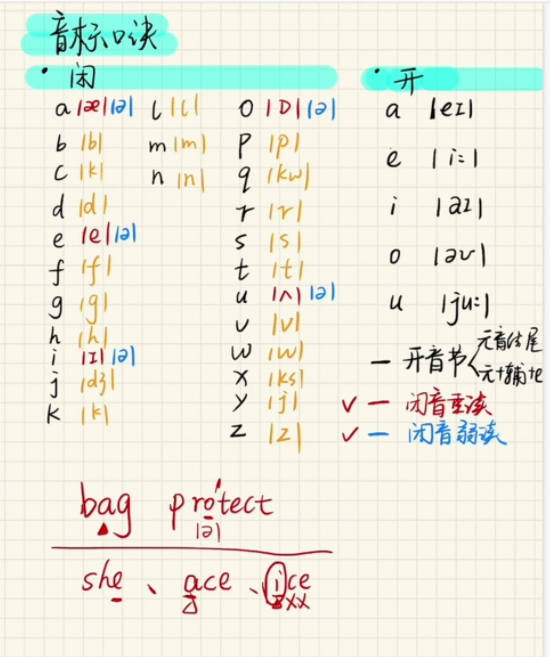 音标口诀
· 闭
a |æ| |ə|
b |b|
c |k|
d |d|
e |e| |ə|
f |f|
g |g|
h |h|
i |ɪ| |ə|
j |dʒ|
k |k|
l |l|
m |m|
n |n|
o |ɒ| |ə|
p |p|
q |kw|
r |r|
s |s|
t |t|
u |ʌ| |ə|
v |v|
w |w|
x |ks|
y |j|
z |z|
· 开
a |eɪ|
e |i:|
i |aɪ|
o |əʊ|
u |ju:|
一 开音节 元音结尾
元+辅+e
✓ 一 闭音重读
✓ 一 闭音弱读
bag pro'tect
|ə|
she、ace、ice
xx